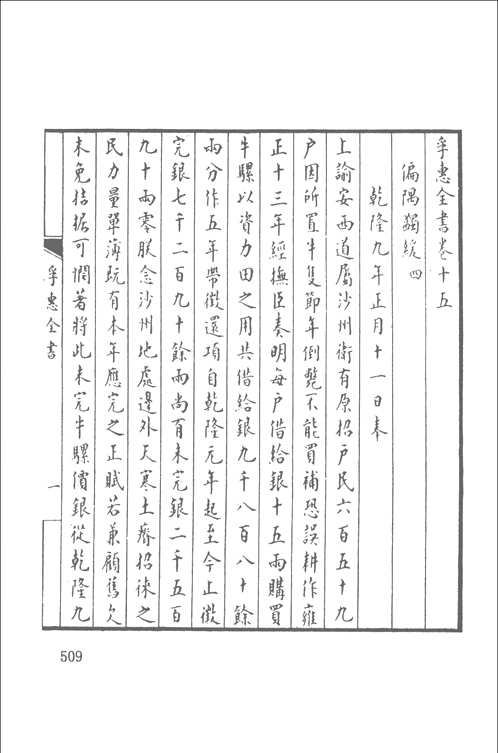 孚惠全書卷十五
偏隅蠲緩四
乾隆九年正月十一日奉
上諭安西道屬沙州衛有原招戶民六百五十九
戶因所置牛隻節年倒斃不能買補恐誤耕作雍
正十三年經撫臣奏明每戶借給銀十五兩購買
牛騾以資力田之用共借給銀九千八百八十餘
兩分作五年帶徵還項自乾隆元年起至今止徵
完銀七千二百九十餘兩尚有未完銀二千五百
九十兩零朕念沙州地處邊外天寒土瘠招徠之
民力量單薄既有本年應完之正賦若兼顧舊欠
未免拮据可憫著將此未完牛騾價銀從乾隆九
孚惠全書
一
509